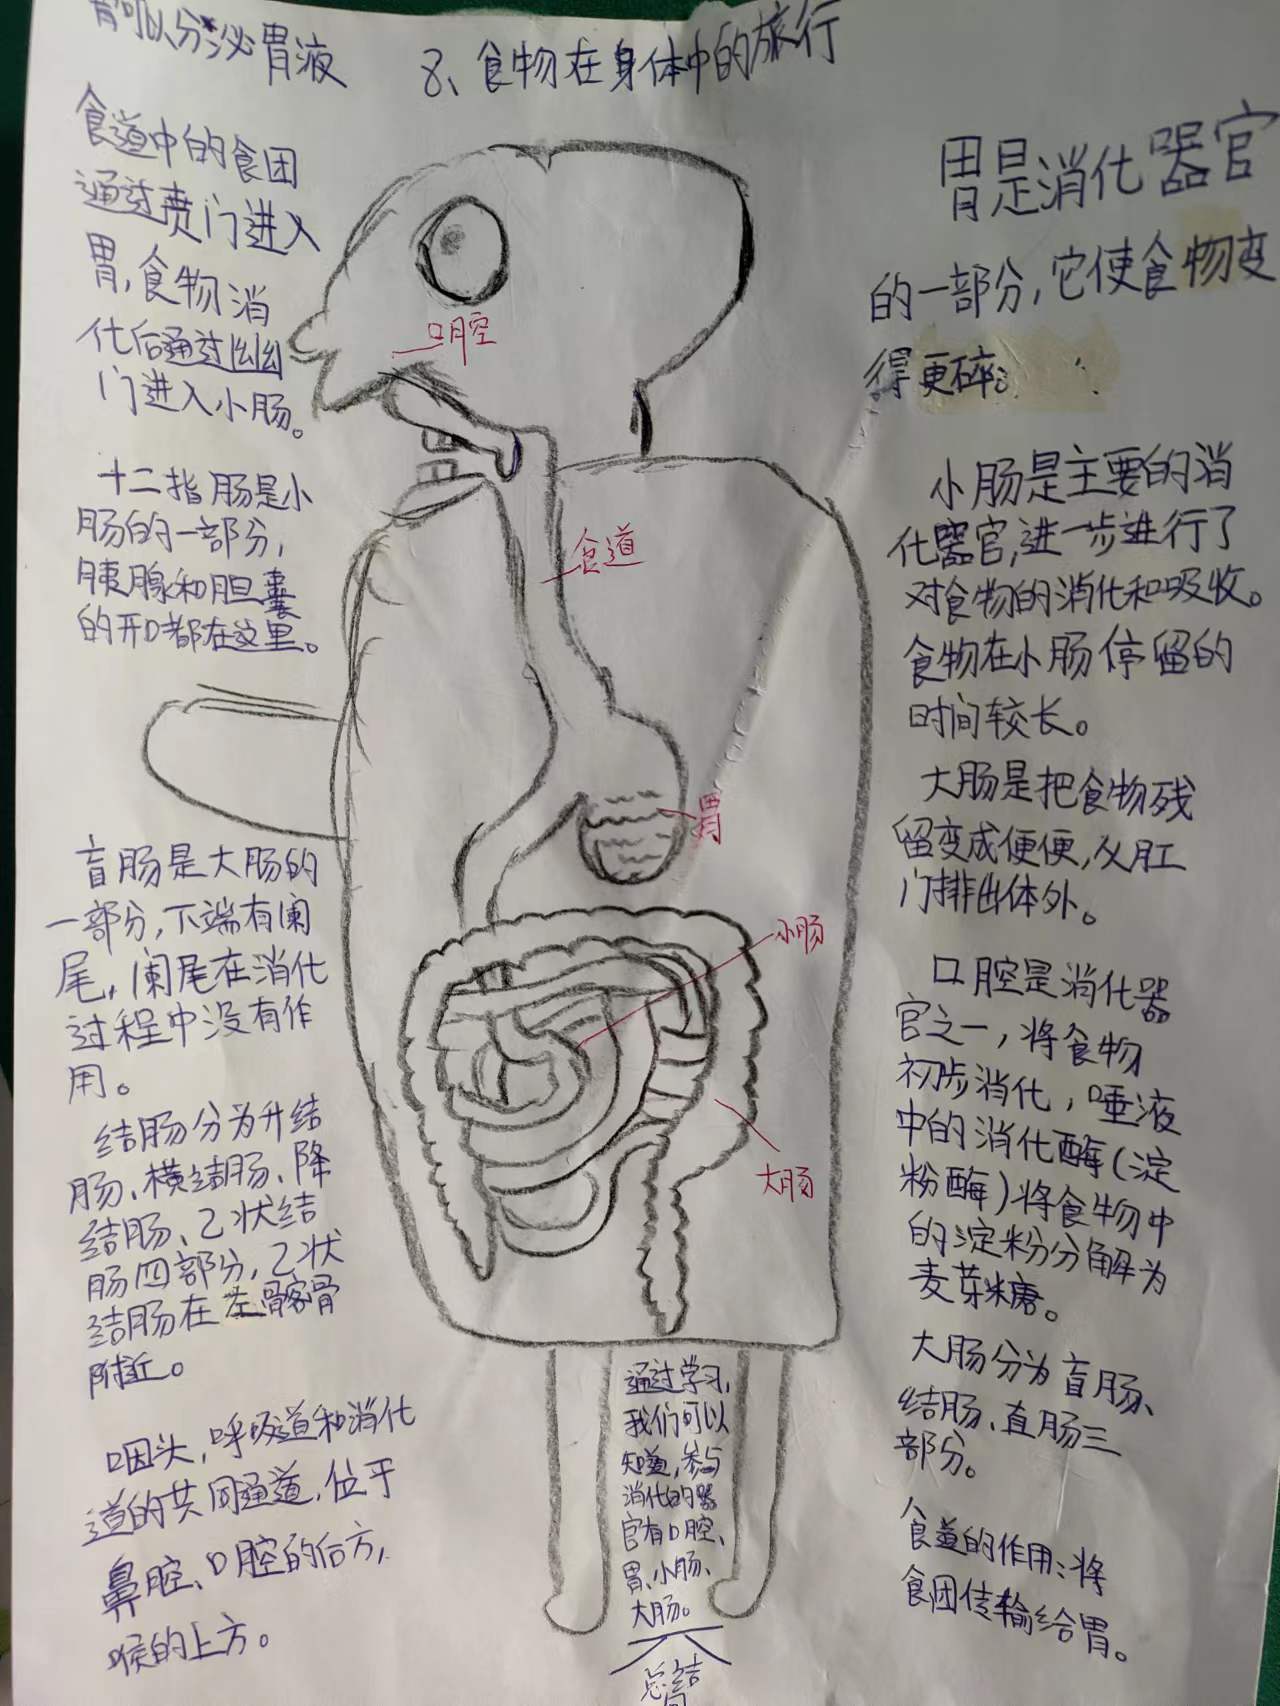 胃可以分泌胃液
8、食物在身体中的旅行
食道中的食团
通过贲门进入
胃,食物消
化后通过幽
门进入小肠。
十二指肠是小
肠的一部分,
胰腺和胆囊
的开口都在这里。
盲肠是大肠的
一部分,下端有阑
尾,阑尾在消化
过程中没有作
用。
结肠分为升结
肠、横结肠、降
结肠、乙状结
肠四部分,乙状
结肠在左髂骨
附近。
咽头,呼吸道和消化
道的共同通道,位于
鼻腔、口腔的后方,
喉的上方。
口腔
食道
胃
小肠
大肠
通过学习,
我们可以
知道,参与
消化的器
官有口腔、
胃、小肠、
大肠。
总结
胃是消化器官
的一部分,它使食物变
得更碎;
小肠是主要的消
化器官,进一步进行了
对食物的消化和吸收。
食物在小肠停留的
时间较长。
大肠是把食物残
留变成便便,从肛
门排出体外。
口腔是消化器
官之一,将食物
初步消化,唾液
中的消化酶(淀
粉酶)将食物中
的淀粉分解为
麦芽糖。
大肠分为盲肠、
结肠、直肠三
部分。
食道的作用:将
食团传输给胃。